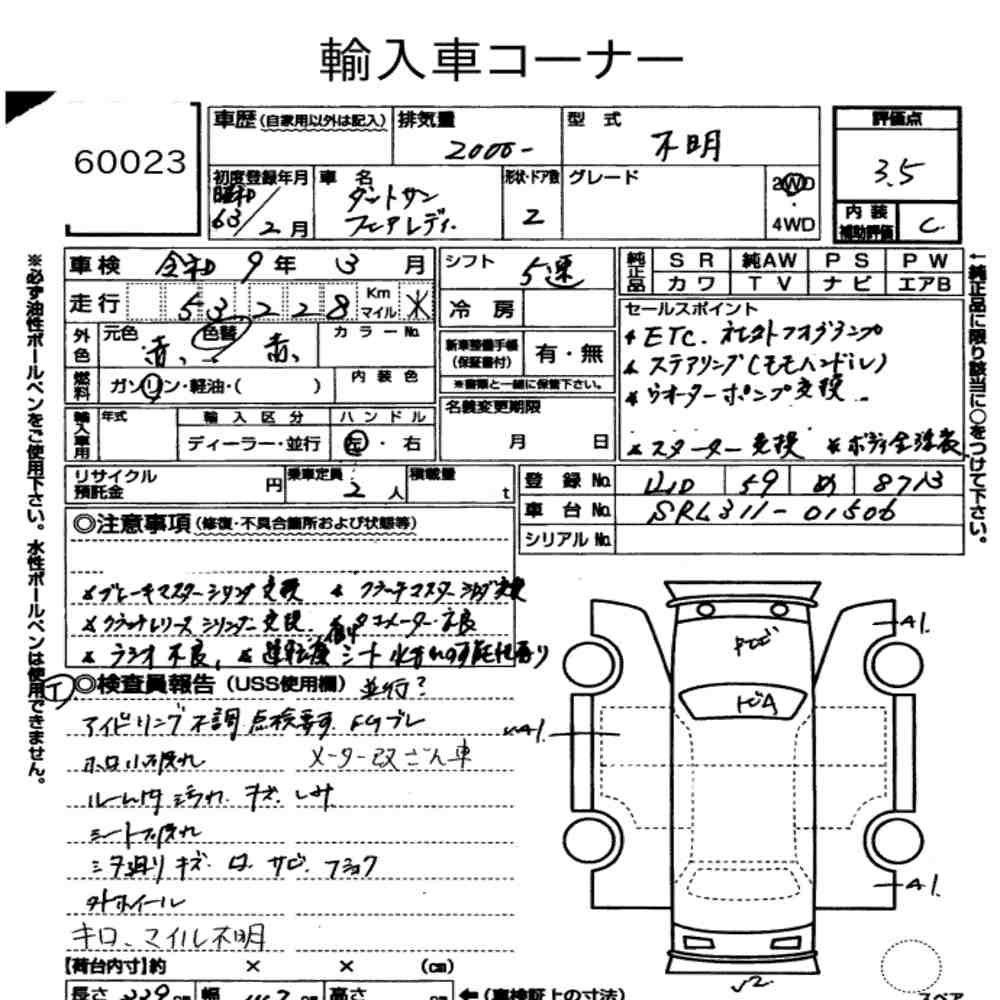 輸入車コーナー
60023
車歴 (自家用以外は記入) 排気量 2000- 型式 不明
初度登録年月 昭和 63/2月 車名 ダットサン フェアレディ 形状・ドア数 2 グレード 2WD・4WD
評価点 3.5
内装補助評価 C
※必ず油性ボールペンをご使用下さい。水性ボールペンは使用できません。
車検 令和 9年 3月
走行 53228 Km マイル
外色 元色 赤、 色替 赤、 カラーNo.
燃料 ガソリン・軽油・( ) 内装色
輸入車用 年式 輸入区分 ディーラー・並行 ハンドル 左・右
シフト 5速
冷房
新車整備手帳(保証書付) 有・無
※書類と一緒に保管下さい。
名義変更期限 月 日
純正品 SR 純AW PS PW
カワ TV ナビ エアB
↑純正品に限り該当に○をつけて下さい。
セールスポイント
ETC.
ステアリング(モモハンドル)
ウォーターポンプ交換
スターター交換 ※ボディ全塗装
リサイクル預託金 円 乗車定員 2人 積載量 t
登録No. 59 め 8713
車台No. SRL311-01506
シリアルNo.
◎注意事項 (修復・不具合箇所および状態等)
ブレーキマスターシリンダ交換 クラッチマスターシリンダ交換
クラッチレリーズシリンダー交換 タコメーター不良
ラジオ不良、 シート
◎検査員報告 (USS使用欄) 並行?
アイドリング不調 点検要す
ホロ小破れ メーター改ざん車
ルーム内汚れ キズ シミ
シート破れ
シタ廻りキズ 凹 サビ フショク
外ホイール
キロ、マイル不明
【荷台内寸】約 × × (cm)
長さ 339 cm 幅 高さ cm ←(車検証上の寸法)
A1
A1
A1
√2
スペア